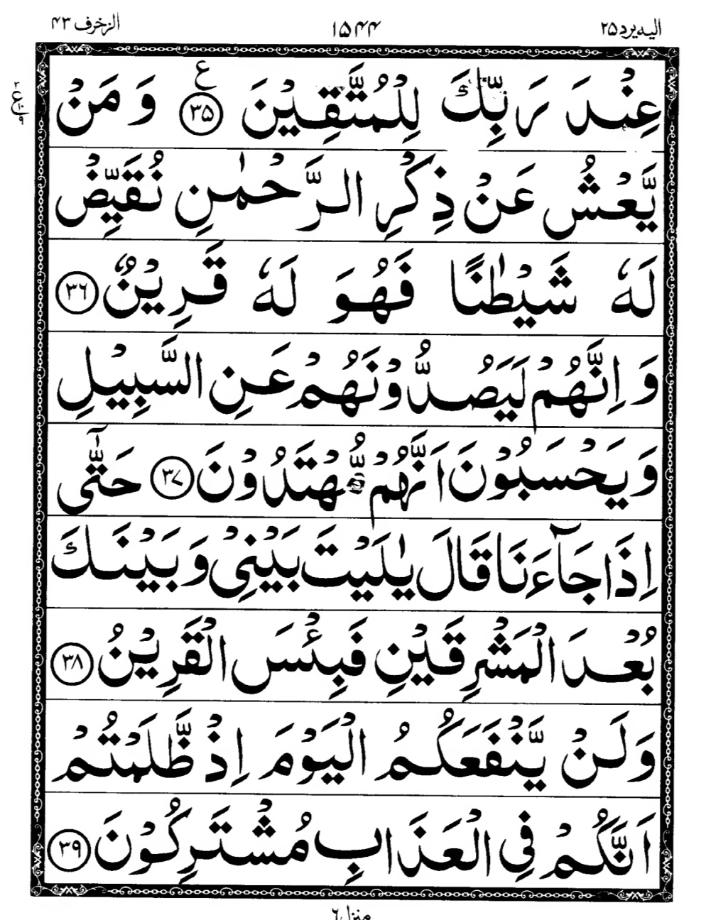 الیه یرد ۲۵ ۱۵۴۴ الزخرف ۴۳
عِنْدَ رَبِّكَ لِلْمُتَّقِيْنَ ۳۵ ع وَ مَنْ
يَّعْشُ عَنْ ذِكْرِ الرَّحْمٰنِ نُقَيِّضْ
لَهٗ شَيْطٰنًا فَهُوَ لَهٗ قَرِيْنٌ ۳۶
وَ اِنَّهُمْ لَيَصُدُّوْنَهُمْ عَنِ السَّبِيْلِ
وَ يَحْسَبُوْنَ اَنَّهُمْ مُّهْتَدُوْنَ ۳۷ حَتّٰٓى
اِذَا جَآءَنَا قَالَ يٰلَيْتَ بَيْنِيْ وَ بَيْنَكَ
بُعْدَ الْمَشْرِقَيْنِ فَبِئْسَ الْقَرِيْنُ ۳۸
وَ لَنْ يَّنْفَعَكُمُ الْيَوْمَ اِذْ ظَّلَمْتُمْ
اَنَّكُمْ فِي الْعَذَابِ مُشْتَرِكُوْنَ ۳۹
منزل ۶